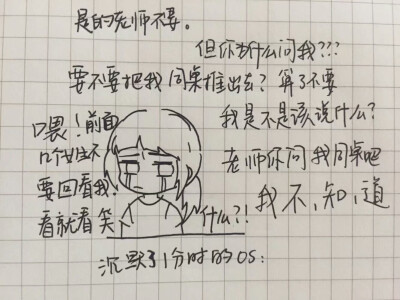 是的老师不要。
但你为什么问我???
要不要把我同桌推出去?算了不要
我是不是该说什么?
喂!前面
几个女生不
要回看我!
看就看笑
老师你问我同桌吧
什么?!
我不,知,道
沉默了1分时的OS: